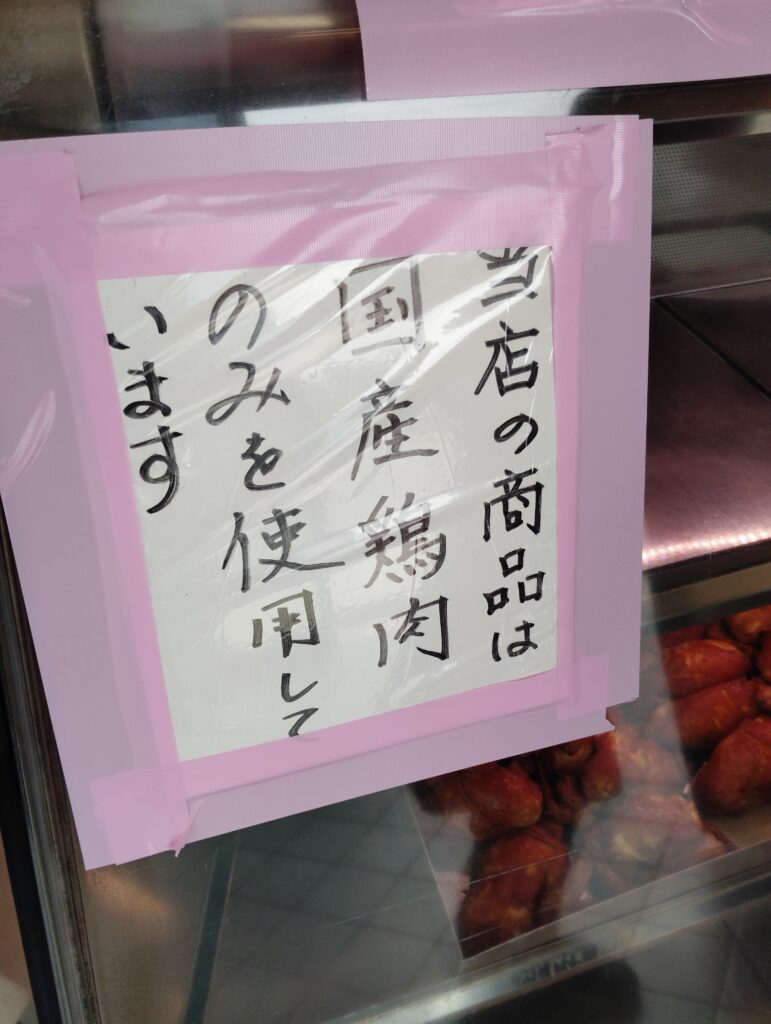 当店の商品は
国産鶏肉
のみを使用して
います